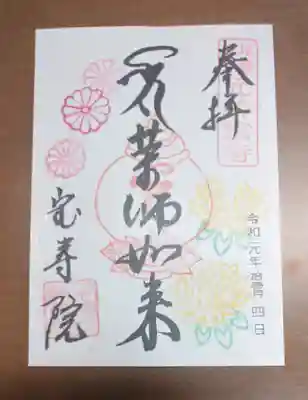 奉拝
令和元年拾壹月四日
薬師如来
宝寿院